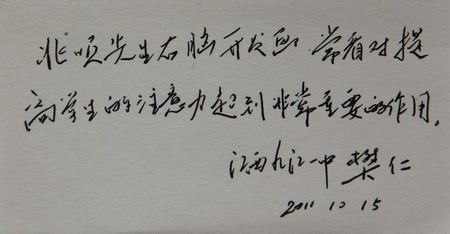 兆顺先生右脑开发函 常看对提
高学生的注意力起到非常重要的作用。
江西九江一中 樊仁
2011 10 15